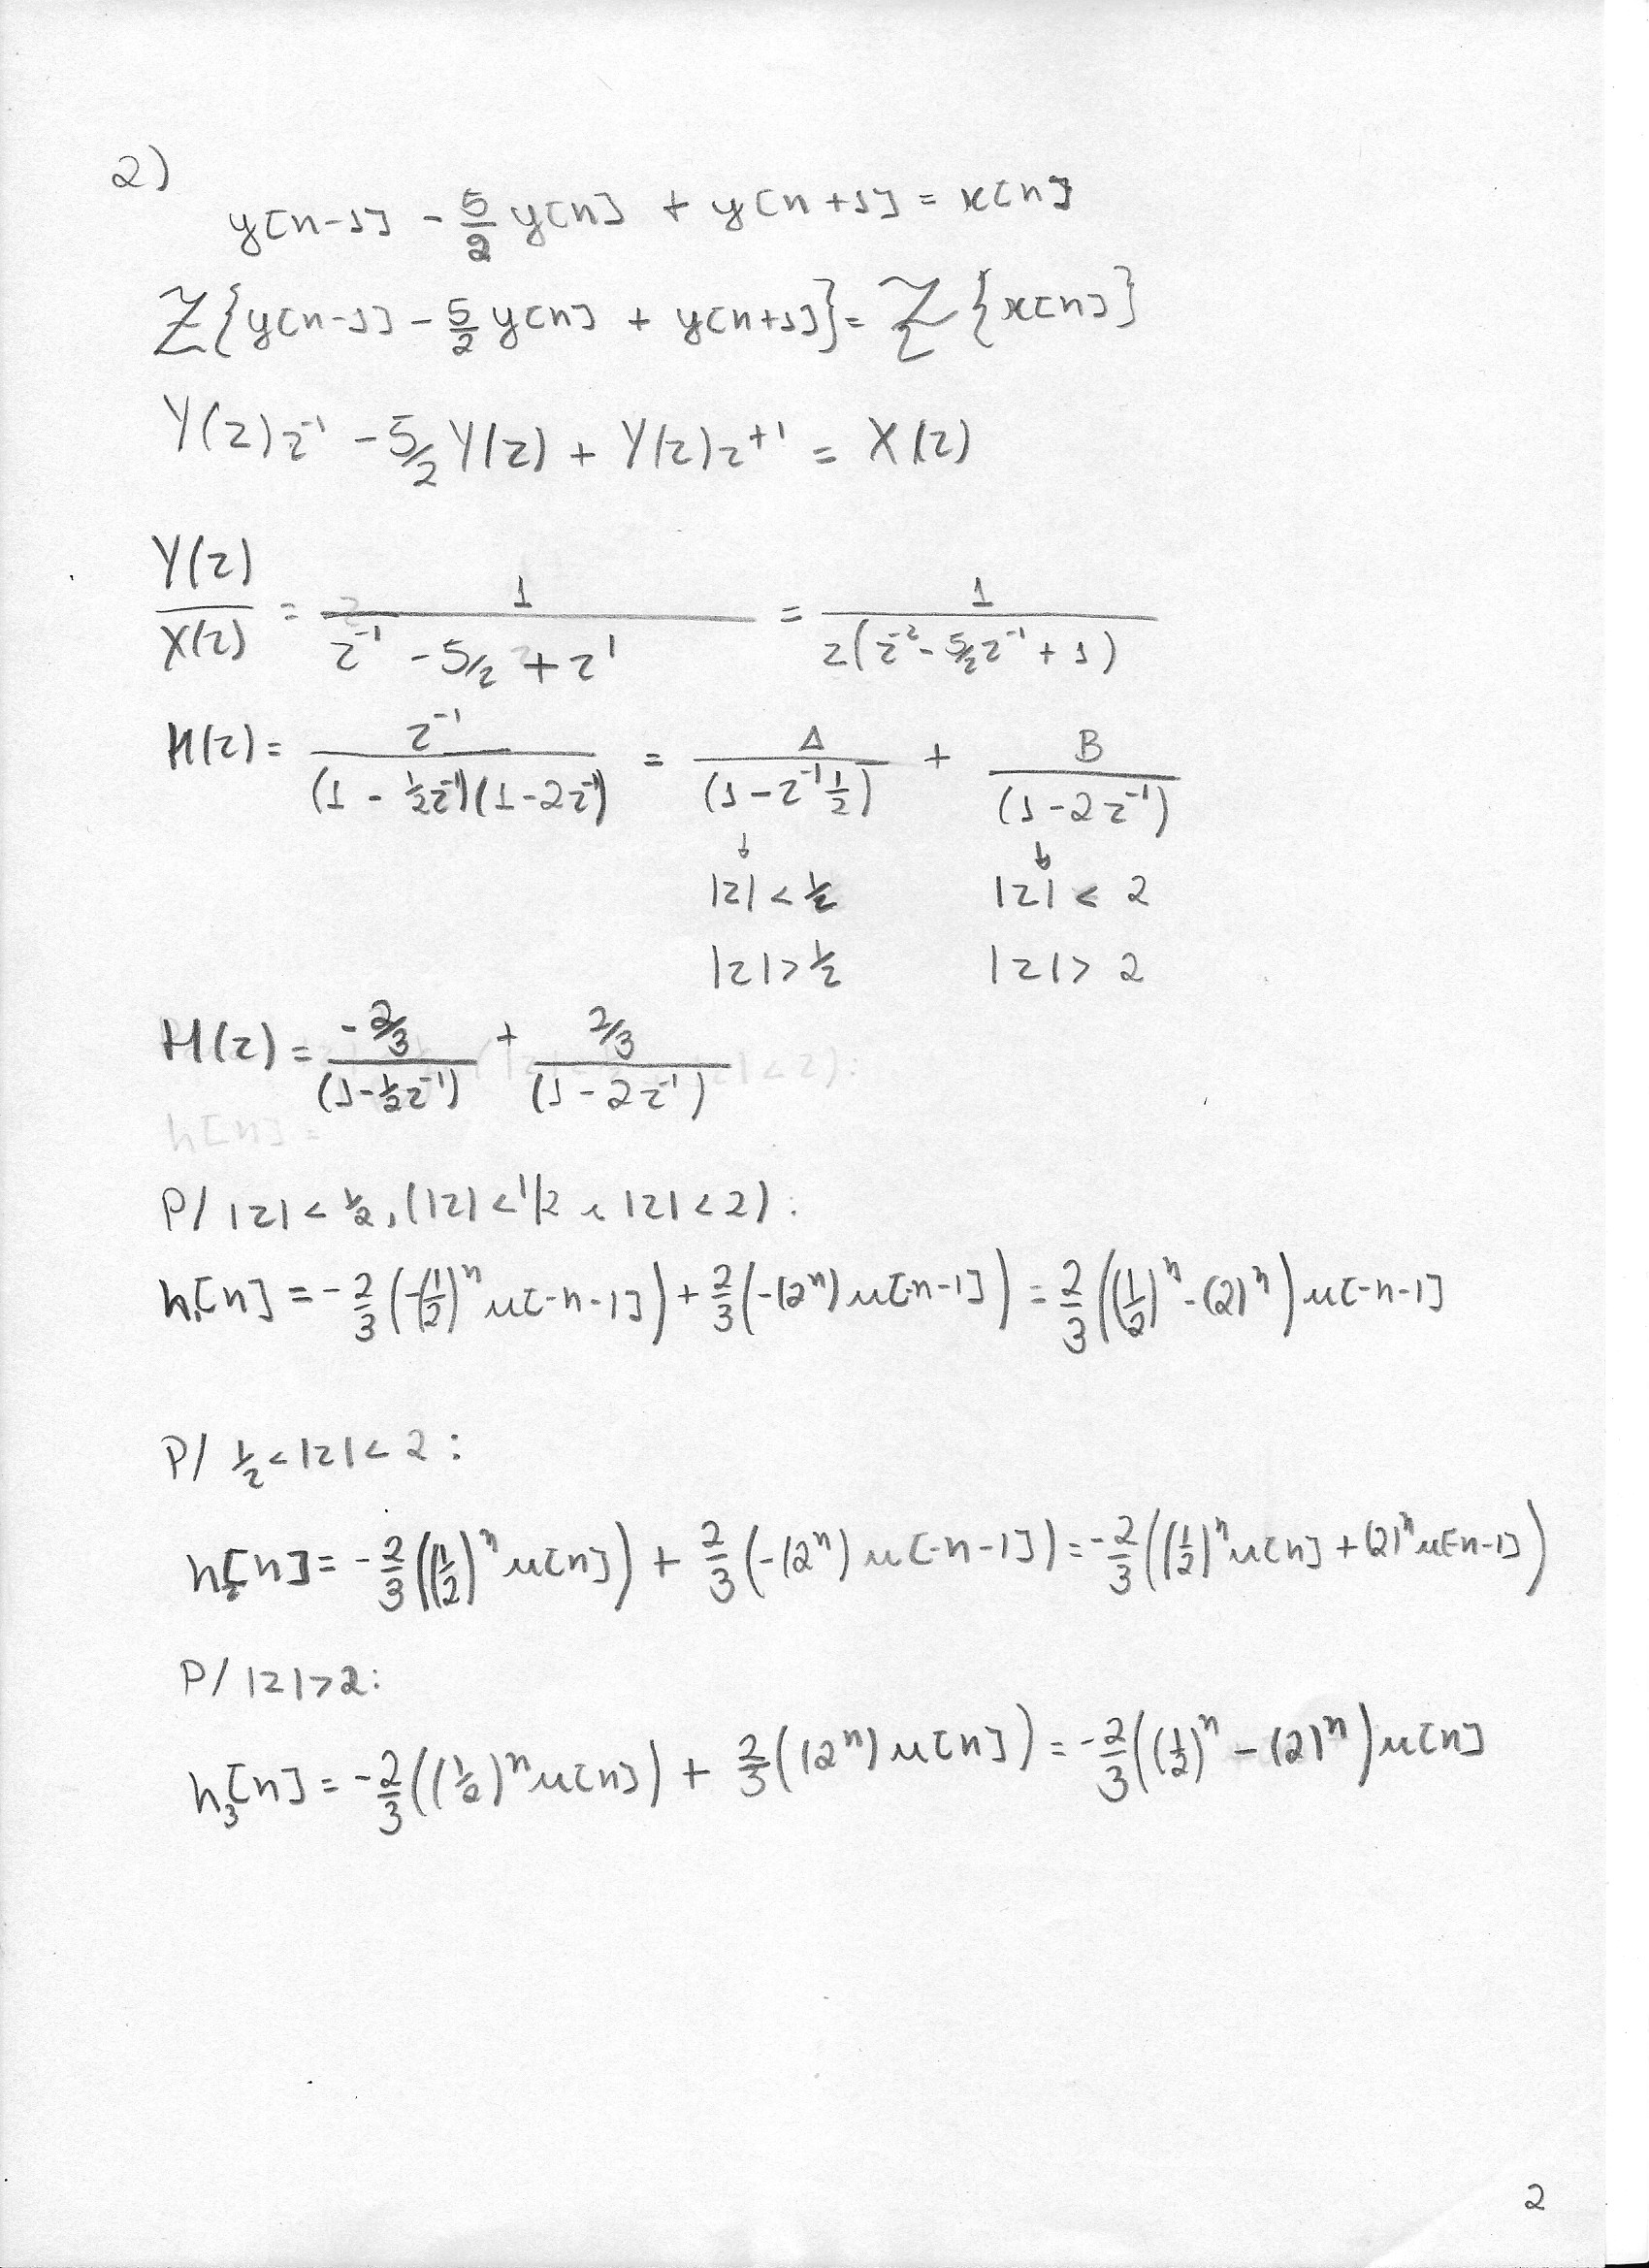 2)
y[n-1] - 5/2 y[n] + y[n+1] = x[n]
Z{y[n-1] - 5/2 y[n] + y[n+1]} = Z{x[n]}
Y(z)z⁻¹ - 5/2 Y(z) + Y(z)z⁺¹ = X(z)
Y(z)/X(z) = 1/(z⁻¹ - 5/2 + z¹) = 1/(z(z⁻² - 5/2 z⁻¹ + 1))
H(z) = z⁻¹/((1 - 1/2 z⁻¹)(1 - 2z⁻¹)) = A/(1 - z⁻¹ 1/2) + B/(1 - 2z⁻¹)
↓ ↓
|z| < 1/2 |z| < 2
|z| > 1/2 |z| > 2
H(z) = (-2/3)/(1 - 1/2 z⁻¹) + (2/3)/(1 - 2z⁻¹)
h[n] =
P/ |z| < 1/2, (|z| < 1/2 e |z| < 2):
h₁[n] = -2/3 (-(1/2)ⁿ u[-n-1]) + 2/3 (-(2ⁿ) u[-n-1]) = 2/3 ((1/2)ⁿ - (2)ⁿ) u[-n-1]
P/ 1/2 < |z| < 2:
h₂[n] = -2/3 ((1/2)ⁿ u[n]) + 2/3 (-(2ⁿ) u[-n-1]) = -2/3 ((1/2)ⁿ u[n] + (2)ⁿ u[-n-1])
P/ |z| > 2:
h₃[n] = -2/3 ((1/2)ⁿ u[n]) + 2/3 ((2ⁿ) u[n]) = -2/3 ((1/2)ⁿ - (2)ⁿ) u[n]
2